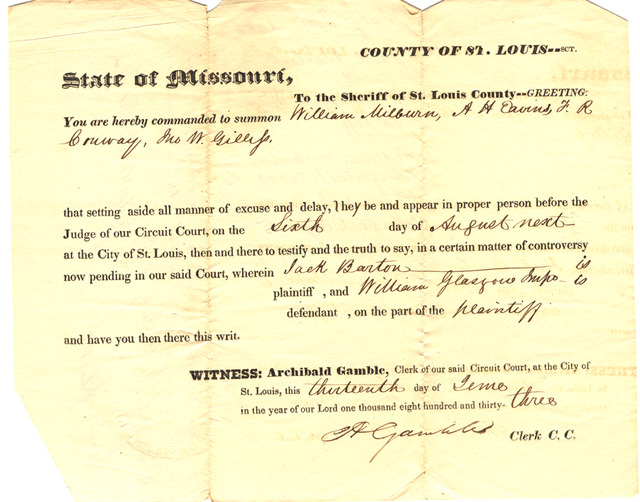 COUNTY OF ST. LOUIS--SCT.
State of Missouri,
To the Sheriff of St. Louis County--GREETING:
You are hereby commanded to summon William Milburn, A H Eavins, F. R
Conway, Jno W. Gilliss.
that setting aside all manner of excuse and delay, They be and appear in proper person before the
Judge of our Circuit Court, on the Sixth day of August next
at the City of St. Louis, then and there to testify and the truth to say, in a certain matter of controversy
now pending in our said Court, wherein Jack Barton is
plaintiff , and William Glasgow is
defendant , on the part of the plaintiff
and have you then there this writ.
WITNESS: Archibald Gamble, Clerk of our said Circuit Court, at the City of
St. Louis, this thirteenth day of
in the year of our Lord one thousand eight hundred and thirty-three
A Gamble Clerk C. C.